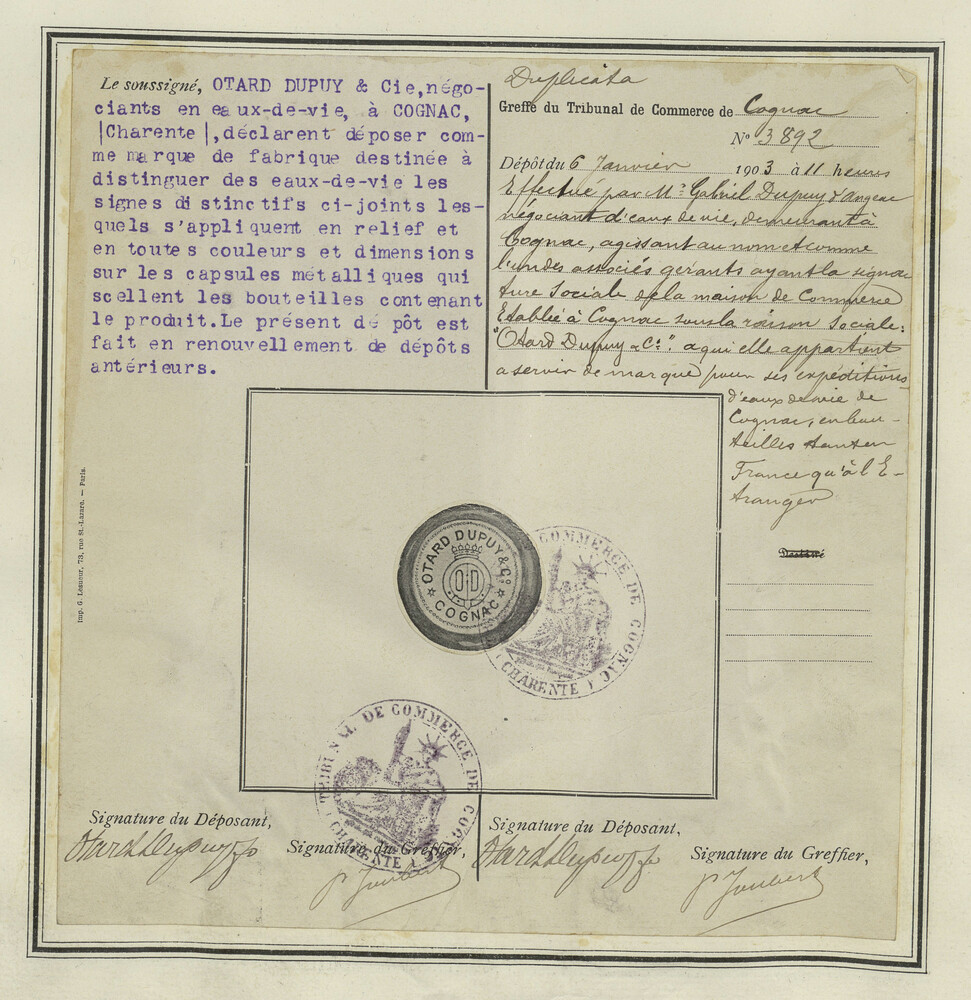 Le soussigné, OTARD DUPUY & Cie,négo-
ciants en eaux-de-vie, à COGNAC,
|Charente|,déclarent déposer com-
me marque de fabrique destinée à
distinguer des eaux-de-vie les
signes distinctifs ci-joints les-
quels s'appliquent en relief et
en toutes couleurs et dimensions
sur les capsules métalliques qui
scellent les bouteilles contenant
le produit.Le présent dépôt est
fait en renouvellement de dépôts
antérieurs.
Duplicata
Greffe du Tribunal de Commerce de Cognac
N° 3892
Dépôt du 6 Janvier 1903 à 11 heures
Effectué par Mr Gabriel Dupuy d'Angeac
négociant d'eaux de vie, demeurant à
Cognac, agissant au nom et comme
l'un des associés gérants ayant la signa
ture Sociale de la maison de Commerce
Etablie à Cognac sous la raison Sociale:
"Otard Dupuy & Cie". a qui elle appartient
a servir de marque pour ses expéditions
d'eaux de vie de
Cognac, en bou-
teilles tant en
France qu'à l'E-
tranger
Imp. G. Lesueur, 73, rue St-Lazare. — Paris.
OTARD DUPUY & Co
COGNAC
TRIBUNAL DE COMMERCE DE COGNAC
(CHARENTE)
COMMERCE DE COGNAC
(CHARENTE)
Signature du Déposant,
Otard Dupuy & Co
Signature du Greffier,
P. Joubert
Signature du Déposant,
Otard Dupuy & Co
Signature du Greffier,
P. Joubert